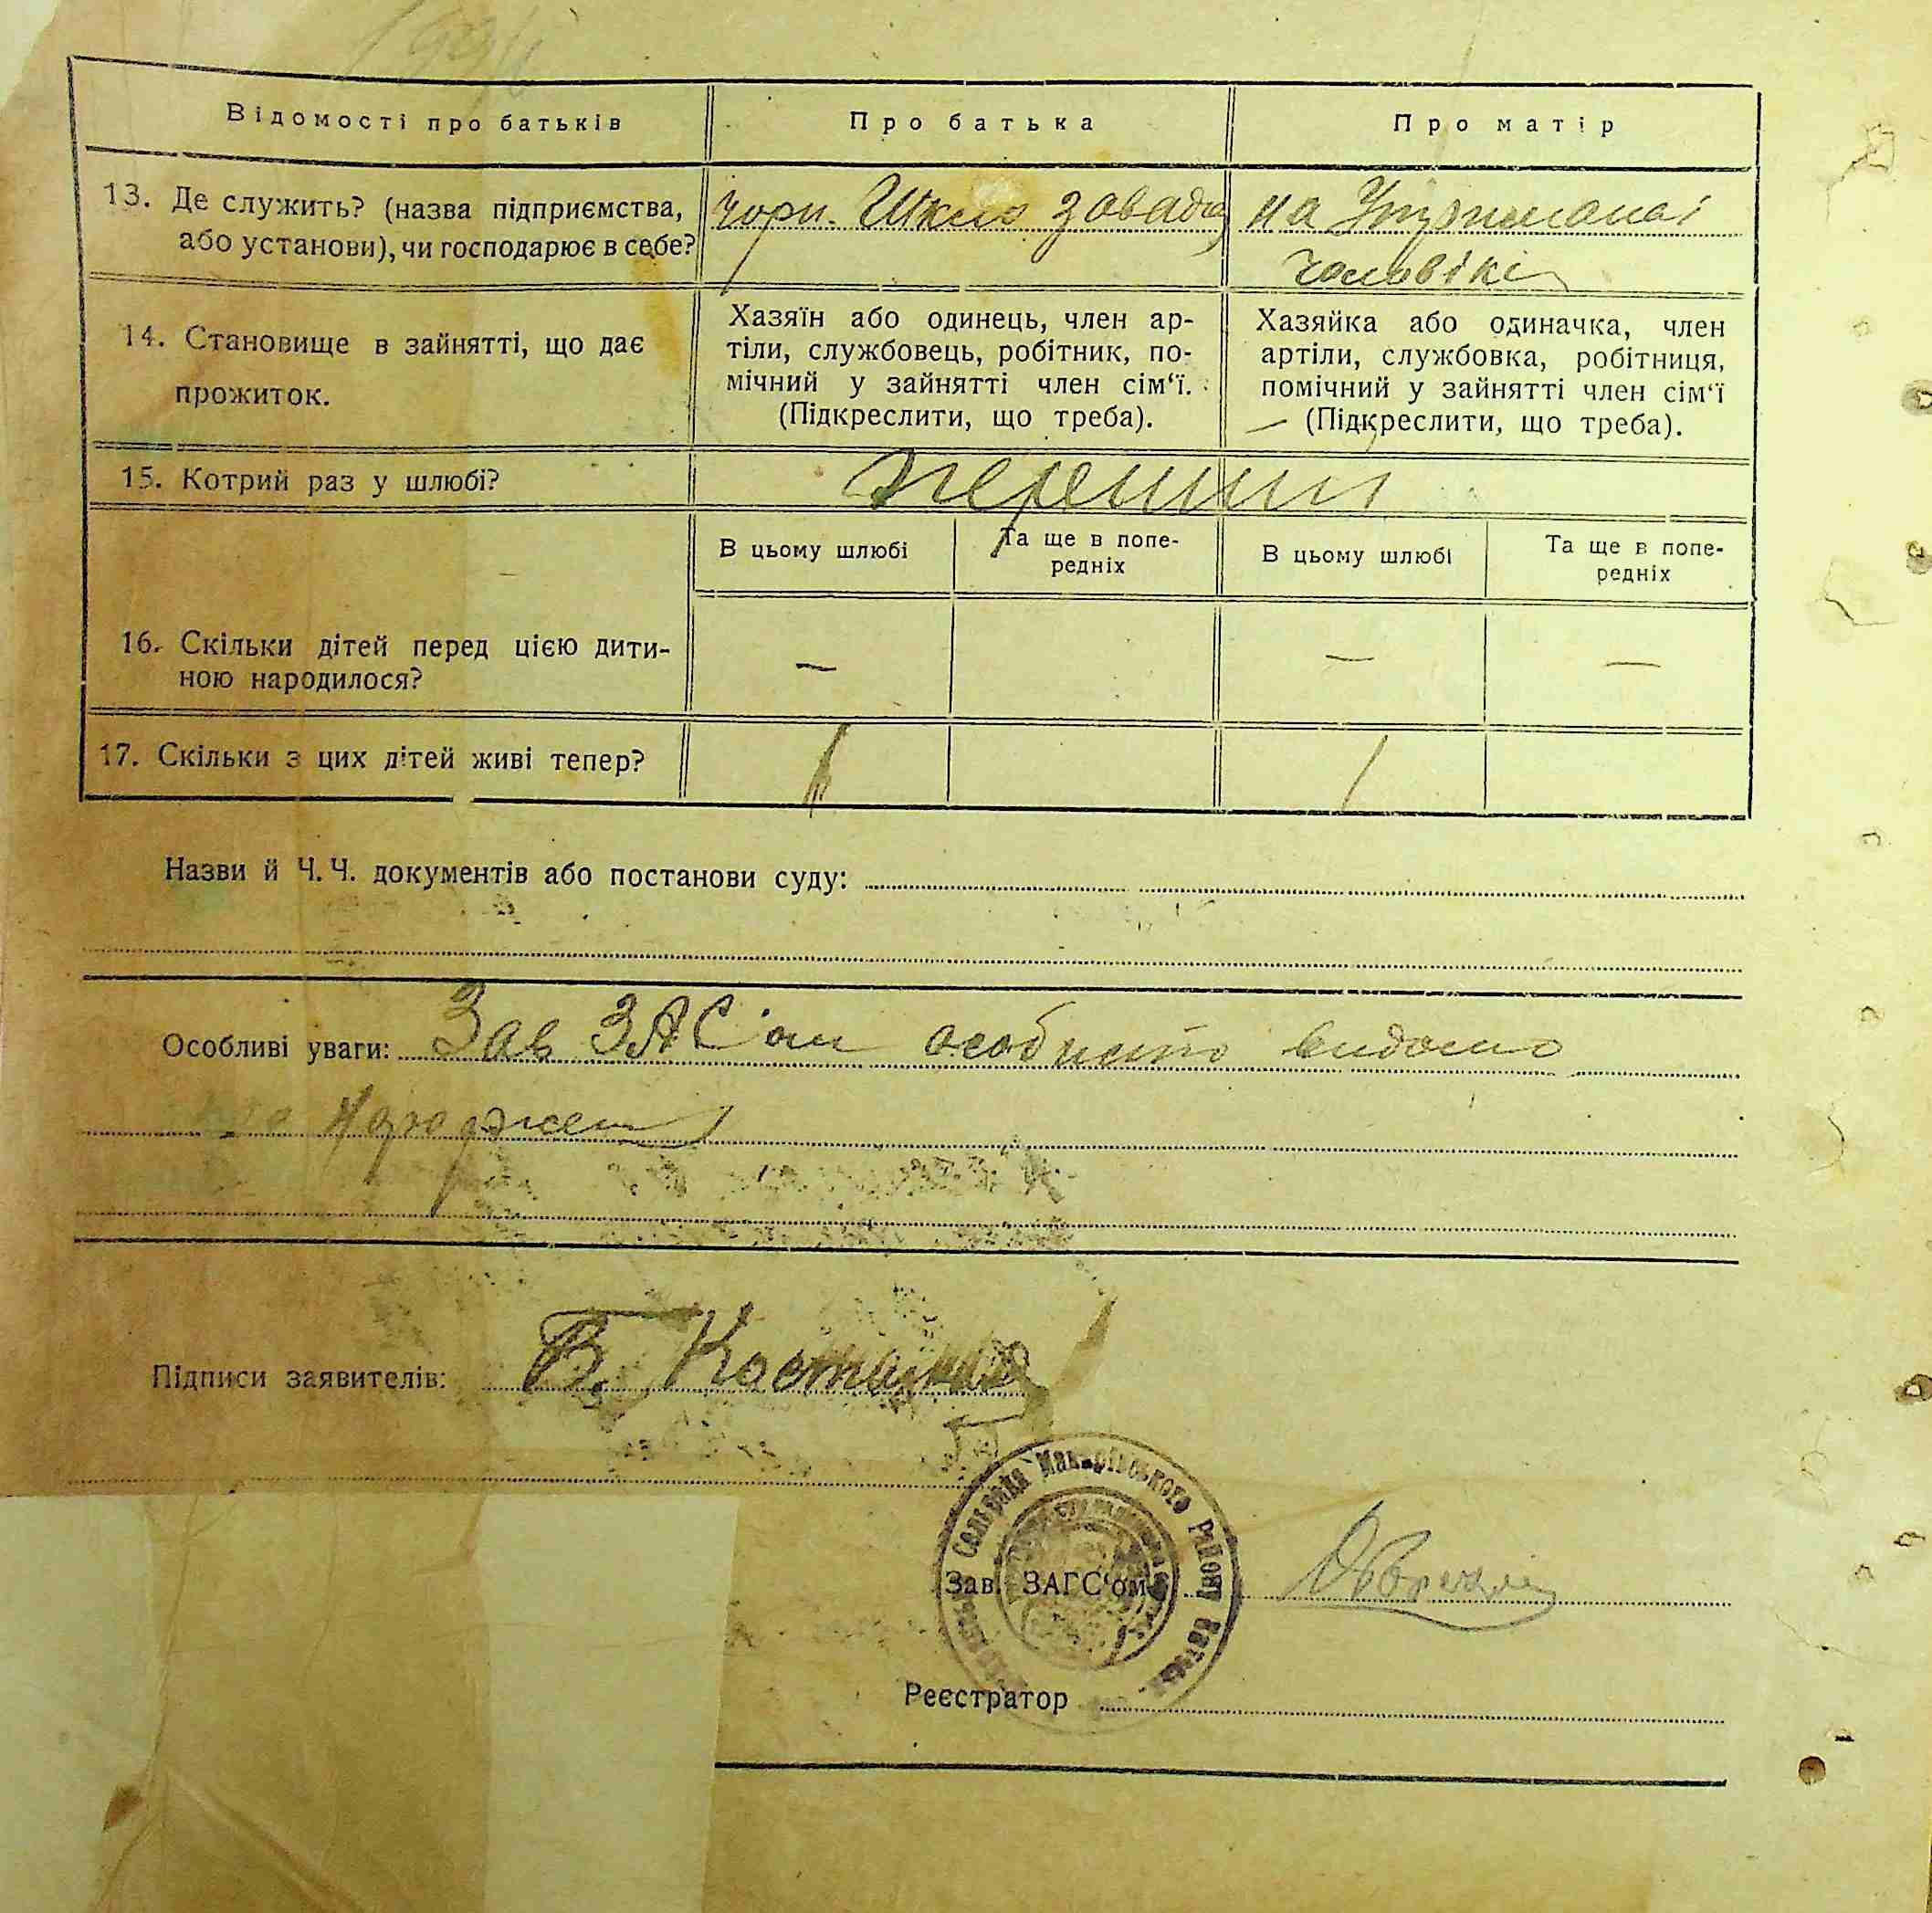 Відомості про батьків
Про батька
Про матір
13. Де служить? (назва підприємства,
або установи), чи господарює в себе?
чорн. Шкло завада
на Утриманаі
чоловікі
14. Становище в зайнятті, що дає
прожиток.
Хазяїн або одинець, член ар-
тіли, службовець, робітник, по-
мічний у зайнятті член сім‘ї.
(Підкреслити, що треба).
Хазяйка або одиначка, член
артіли, службовка, робітниця,
помічний у зайнятті член сім‘ї
— (Підкреслити, що треба).
15. Котрий раз у шлюбі?
перший
В цьому шлюбі
Та ще в попе-
редніх
В цьому шлюбі
Та ще в попе-
редніх
16. Скільки дітей перед цією дити-
ною народилося?
—
—
—
17. Скільки з цих дітей живі тепер?
1
1
Назви й Ч. Ч. документів або постанови суду:
Особливі уваги: Зав ЗАС'ом особисто видомо
про
Підписи заявителів: В.
Сельрада Макарівського Району
Зав. ЗАГС‘ом
Реєстратор